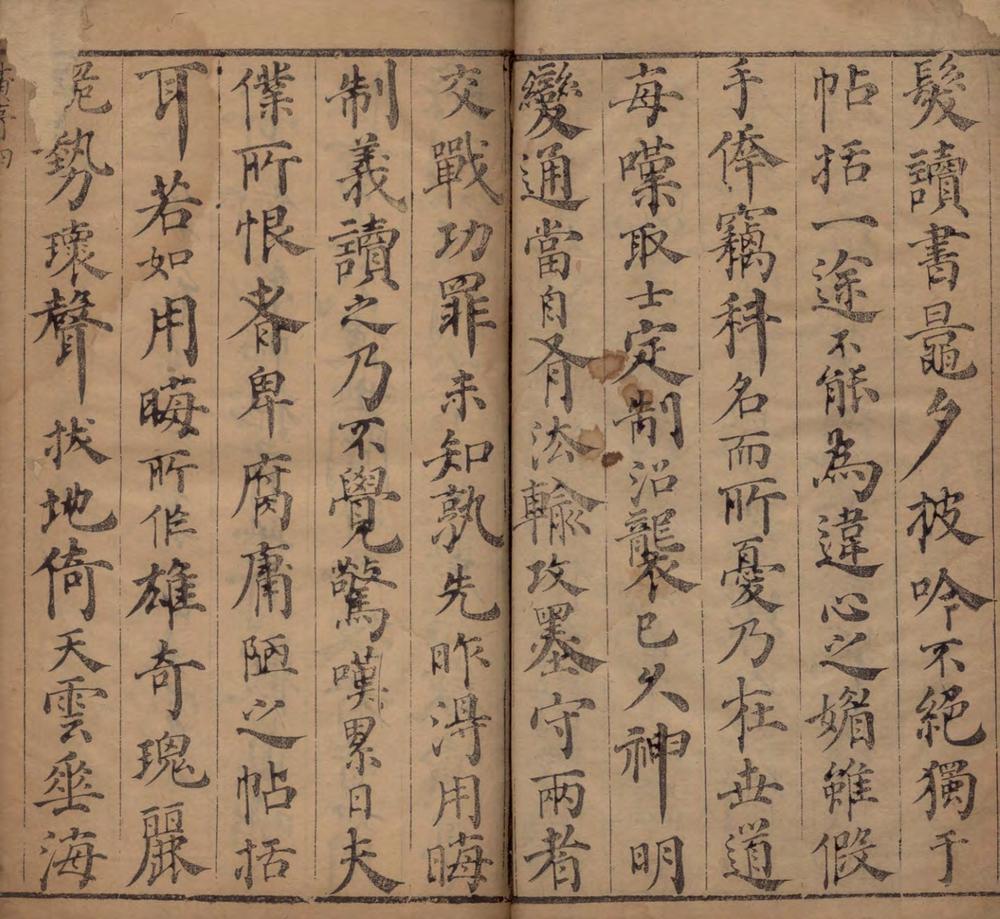 髮讀書鼂夕披吟不絕獨于
帖括一途不能為違心之媚雖假
手倖竊科名而所憂乃在世道
每嘆取士定制沿襲已久神明
變通當自有法輸攻墨守兩者
交戰功罪未知孰先昨淂用晦
制義讀之乃不覺驚嘆累日夫
僕所恨者卑腐庸陋之帖括
耳若如用晦所作雄奇瑰麗
詭勢瓌聲拔地倚天雲垂海
序四